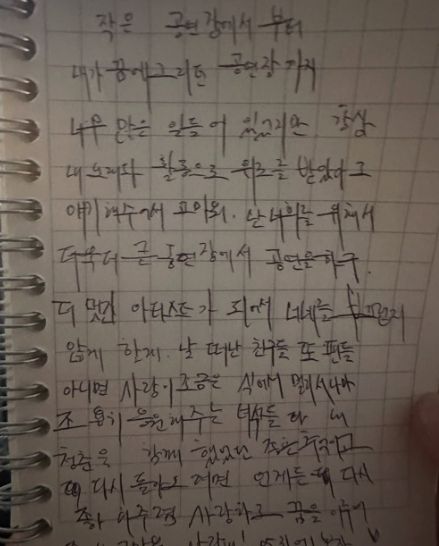 작은 공연장에서 부터
내가 꿈에그리던 공연장 까지
너무 많은 일들이 있었지만 항상
내 노래와 활동으로 위로를 받았다고
얘기해주어서 고마워. 난 너희를 위해서
더욱더 큰 공연장에서 공연을 하구.
더 멋진 아티스트가 되어서 너네를
않게 할게. 날 떠난 친구들 또 팬들
아니면 사랑이 조금은 식어서 멀리서나마
조용히 응원해주는 녀석들 다 내
청춘을 함께 했었던 친구
다시 돌아오려면 언제든 다시
사랑하고 꿈을 이루어